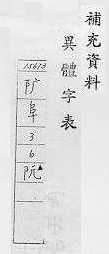 補充資料
異體字表
15673
阝广
阜
3
6
阮▲